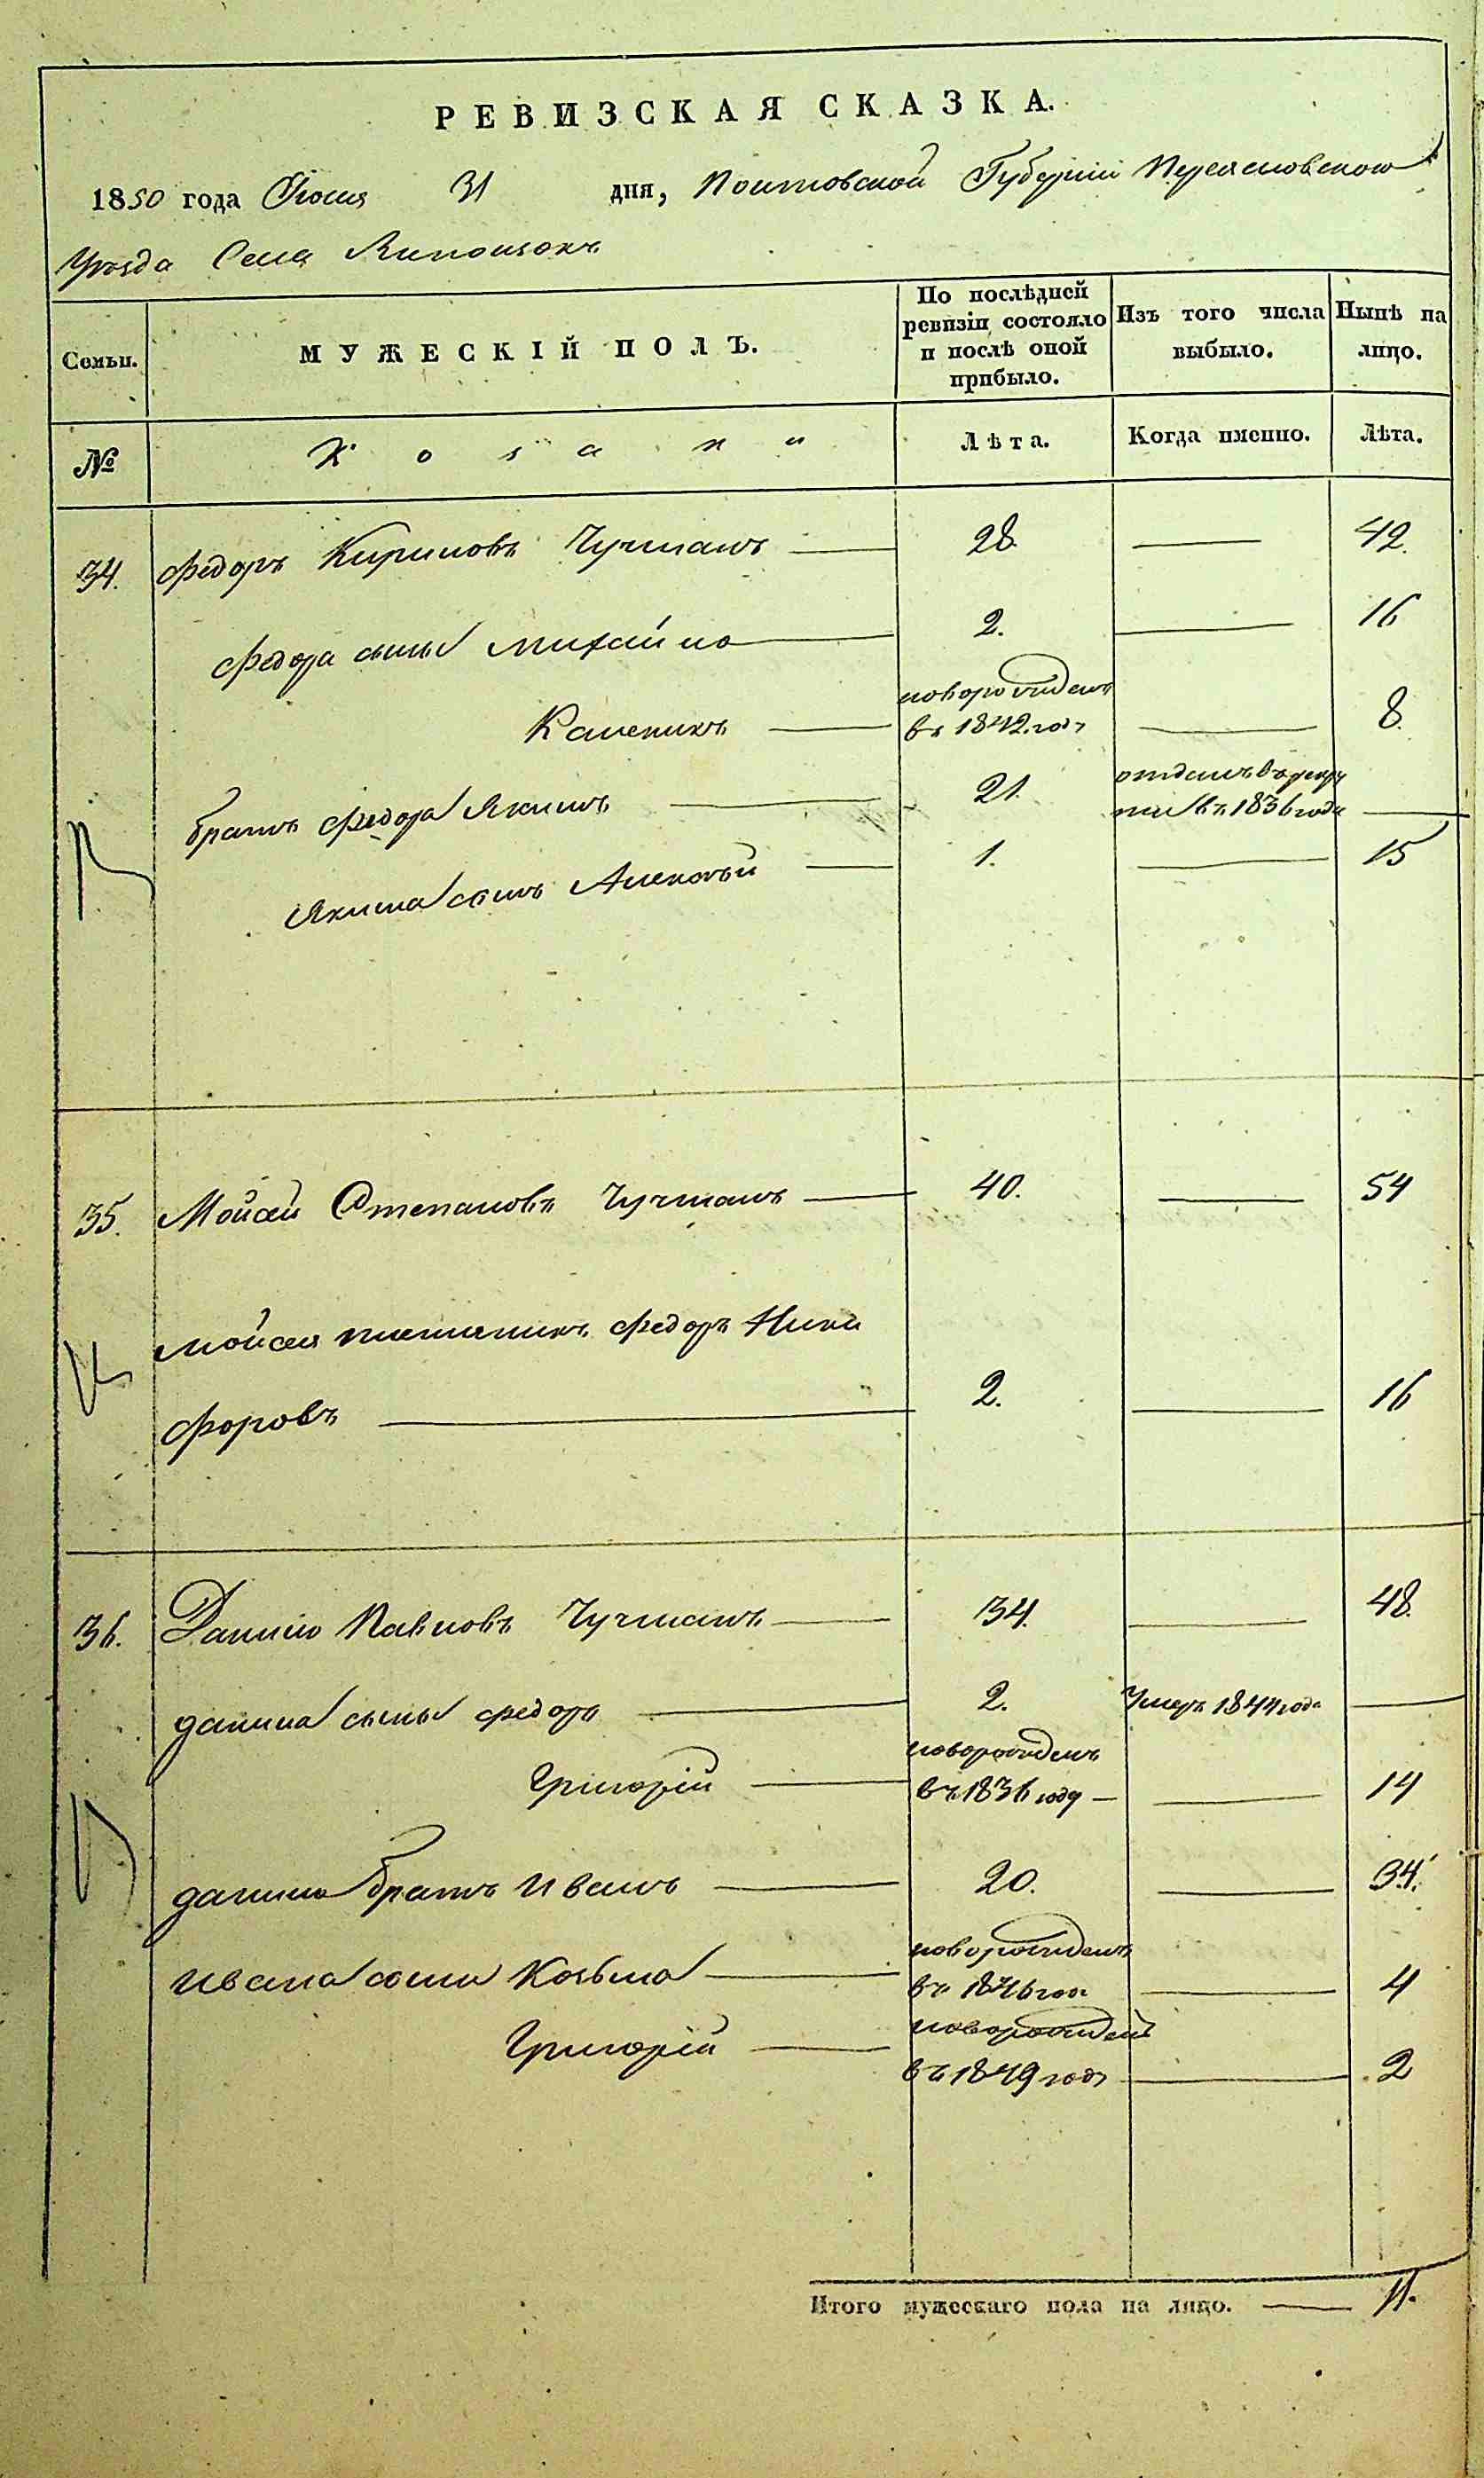 РЕВИЗСКАЯ СКАЗКА.
1850 года Июля 31 дня, Полтавской Губерніи Переясловского
Уѣзда Села Липлявокъ
Семьи. МУЖЕСКІЙ ПОЛЪ. По послѣдней ревизіи состояло и послѣ оной прибыло. Изъ того числа выбыло. Нынѣ на лицо.
№ Козаки Лѣта. Когда именно. Лѣта.
34. Федоръ Кириловъ Чучманъ 28. 42.
Федора сыны Михайло 2. 16
Каленикъ новорожденъ въ 1842 году 8.
братъ Федора Якимъ 21. отданъ въ рекруты въ 1836 году
Якима сынъ Алексѣй 1. 15
35. Мойсей Степановъ Чучманъ 40. 54
Мойсея племяникъ Федоръ Ники
форовъ 2. 16
36. Данило Павловъ Чучманъ 34. 48.
Данила сыны Федоръ 2. Умеръ 1844 года
Григорій новорожденъ въ 1836 году 14
Данила братъ Иванъ 20. 34.
Ивана сыны Козьма новорожденъ въ 1846 году 4
Григорій новорожденъ въ 1849 году 2
Итого мужескаго пола на лицо. 11.